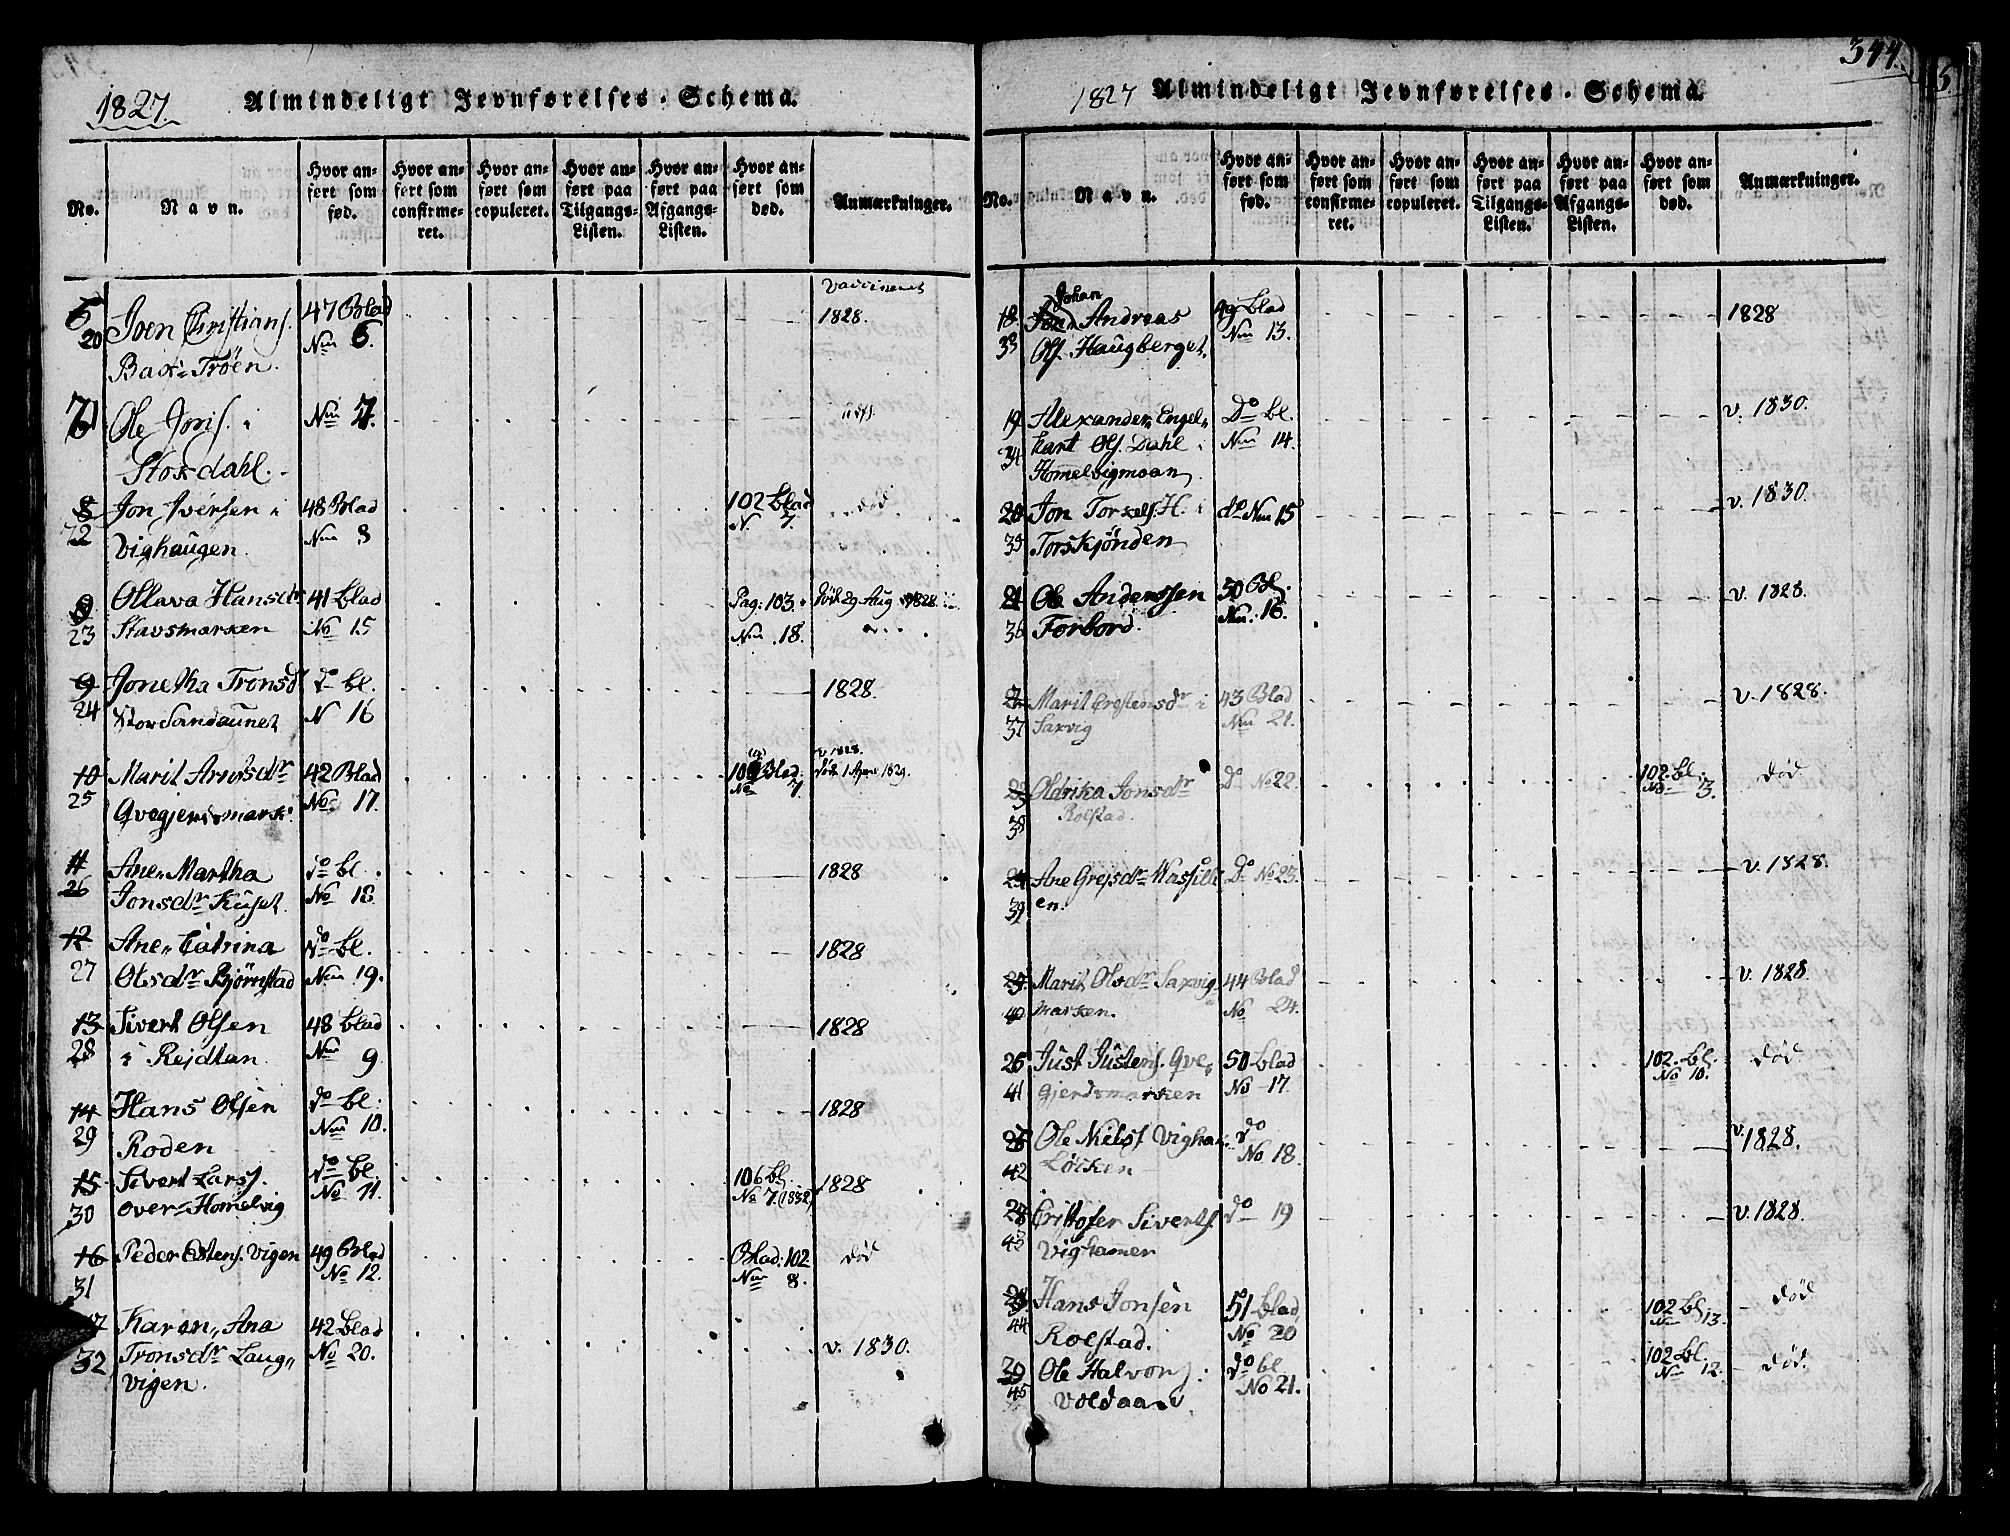 344.
1827. Almindeligt Jevnførelses-Schema.
No.
Navn.
Hvor anført som fød.
Hvor anført som confirmeret.
Hvor anført som copuleret.
Hvor anført paa Tilgangs-Listen.
Hvor anført paa Afgangs-Listen.
Hvor anført som død.
Anmærkninger.
Vaccineret
6 20 Joen Christians. 47 Blad 1828.
Bax-Tröen. Num 6.
7 Ole Jons. i Num 7.
Stordahl.
8 22 Jon Iversen i 48 Blad 102 Blad død.
Vighaugen. Num 8 N 7.
23 Ollava Hansdr 41 Blad Pag: 103. Død 29 Aug 1828.
Stavsmarken No 15 Num 18.
9 24 Jonetha Tronsd do bl. 1828.
Stor Sandaunet N 16
10 25 Marit Arntsdr 42 Blad Blad. v 1828.
Qvegjerdsmark. No 17. No 7.
11 26 Ane Martha do bl. 1828
Jonsdr Kuset. No 18.
12 27 Ane Catrina do bl. 1828
Olsdr Bjørnstad Num 19.
13 28 Sivert Olsen 48 blad 1828
i Rejdtan. Num 9.
14 29 Hans Olsen do bl. 1828
Roden Num 10.
15 30 Sivert Lars. do bl. 106 bl. 1828
over-Homelvig No 11. No 7. (1832)
16 31 Peder Estens. Vigen 49 Blad Blad: 102 død
No 12. Num 8.
17 32 Karen Ana 42 blad
Tronsdr Laug- No 20. v. 1830.
vigen.
1827 Almindeligt Jevnførelses-Schema.
No.
Navn.
Hvor anført som fød.
Hvor anført som confirmeret.
Hvor anført som copuleret.
Hvor anført paa Tilgangs-Listen.
Hvor anført paa Afgangs-Listen.
Hvor anført som død.
Anmærkninger.
Johan
18 33 Andreas 49 blad 1828
Ols. Haugberget. Num 13.
19 34 Alexander Engel- Do bl. v. 1830.
hart Ols. Dahl i Num 14.
Homelvigmoan
20 35 Jon Torkels. H. i do Num 15 v. 1830.
Torskjönden
21 36 Ole Anderssen 50 Bl. v. 1828.
Forbord. Num. 16.
37 Marit Erestensdr i 43 Blad v. 1828.
Saxvig Num 21.
38 Oldrika Jonsdr Do No 22. 102 bl. død
Rolstad. No 3.
24 39 Ane Grejsdr Do No 23. v. 1828.
en.
25 40 Marit Olsdr Saxvig 44 Blad v. 1828.
marken. No 24.
26 41 Just Justens. Qve- 50 blad 102. bl. død
gjerdsmarken No 17. No 10.
42 Ole Niels. Vigha do v. 1828.
Löcken No 18.
28 43 Cristofer Siverts. do 19 v. 1828.
Vighammer
44 Hans Jonsen 51 blad 102 bl. død
Rolstad. No 20 Num 13.
29 45 Ole Halvors. do bl 102 bl. død.
Voldaan No 21. Num 12.